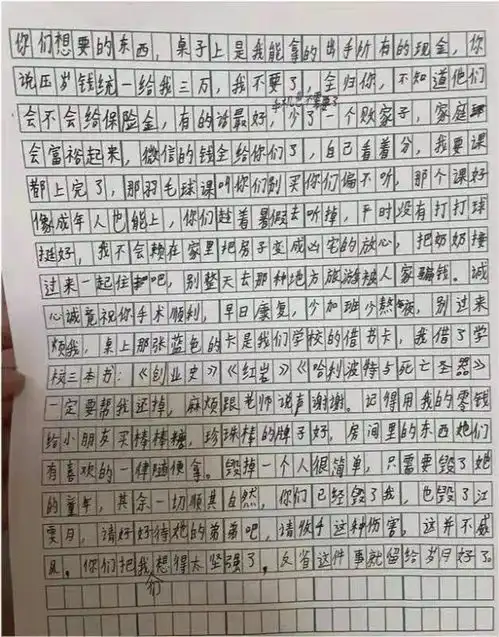 你们想要的东西，桌子上是我能拿的出手所有的现金，你
说压岁钱统一给我三万，我不要了，全归你，不知道他们
会不会给保险金，有的话最好，少了一个败家子，家庭
会富裕起来，微信的钱全给你们了，自己看着分，我要课
都上完了，那羽毛球课叫你们别买你们偏不听，那个课好
像成年人也能上，你们趁着暑假去听掉，平时没有打打球
挺好，我不会赖在家里把房子变成凶宅的放心，把奶奶接
过来一起住吧，别整天去那种地方旅游被人家骗钱。诚
心诚意祝你手术顺利，早日康复，少加班少熬夜，别过来
烦我，桌上那张蓝色的卡是我们学校的借书卡，我借了学
校三本书：《创业史》《红岩》《哈利波特与死亡圣器》
一定要帮我还掉，麻烦跟老师说声谢谢。记得用我的零钱
给小朋友买棒棒糖，珍珠棒的牌子好，房间里的东西她们
有喜欢的一律随便拿。毁掉一个人很简单，只需要毁了她
的童年，其余一切顺其自然，你们已经毁了我，也毁了江
雯月，请好好待她的弟弟吧，请收手这种伤害，这并不威
风，你们把我想得太坚强了，反省这件事就留给岁月好了。